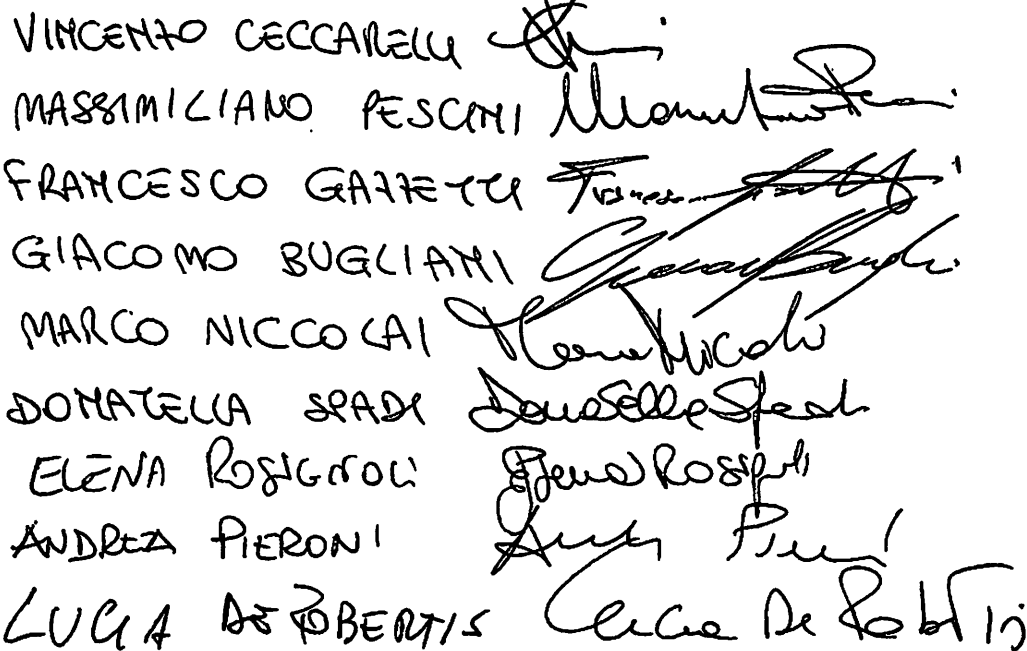 VINCENZO CECCARELLI
MASSIMILIANO PESCINI
FRANCESCO GAZZETTI
GIACOMO BUGLIANI
MARCO NICCOLAI Marco Niccolai
DONATELLA SPADI Donatella Spadi
ELENA ROSIGNOLI Elena Rosignoli
ANDREA PIERONI
LUCIA DE ROBERTIS Lucia De Robertis